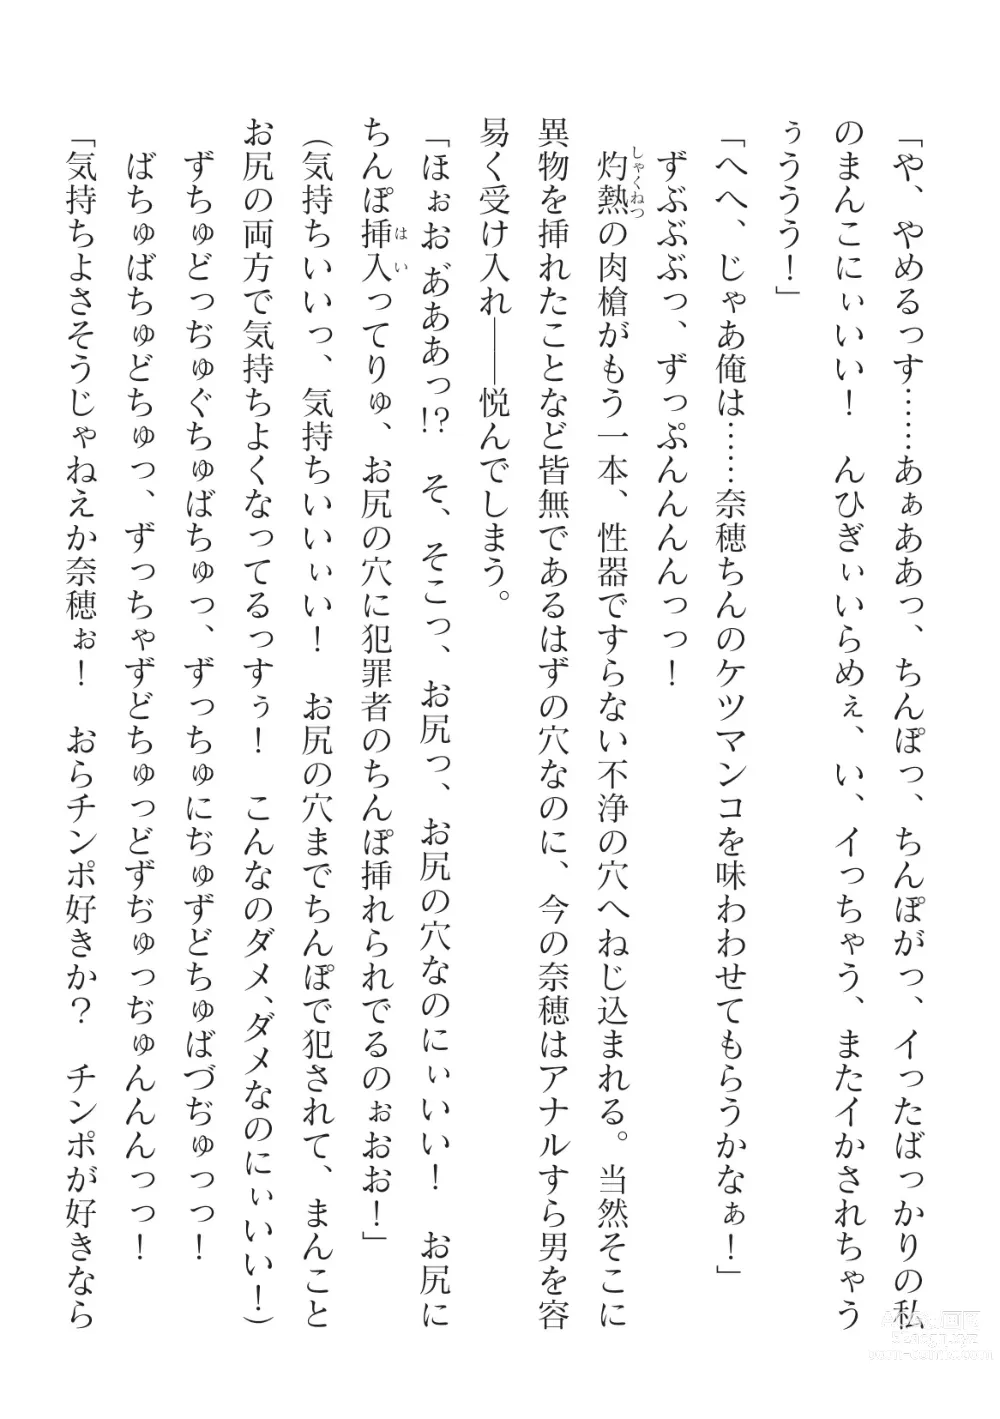 「や、やめるっす……あぁああっ、ちんぽっ、ちんぽがっ、イったばっかりの私
のまんこにぃいい！　んひぎぃいらめぇ、い、イっちゃう、またイかされちゃう
ぅううう！」
「へへ、じゃあ俺は……奈穂ちんのケツマンコを味わわせてもらうかなぁ！」
ずぶぶぶっ、ずっぷんんんんっっ！
しゃくねつ
灼熱の肉槍がもう一本、性器ですらない不浄の穴へねじ込まれる。当然そこに
異物を挿れたことなど皆無であるはずの穴なのに、今の奈穂はアナルすら男を容
易く受け入れ――悦んでしまう。
「ほぉお゛ああぁっ!?　そ、そこっ、お尻っ、お尻の穴なのにぃいい！　お尻に
はい
ちんぽ挿入ってりゅ、お尻の穴に犯罪者のちんぽ挿れられでるのぉおお！」
（気持ちいいっ、気持ちいいぃい！　お尻の穴までちんぽで犯されて、まんこと
お尻の両方で気持ちよくなってるっすぅ！　こんなのダメ、ダメなのにぃいい！）
ずちゅどっぢゅぐちゅばちゅっ、ずっちゅにぢゅずどちゅばづぢゅっっ！
ばちゅばちゅどちゅっ、ずっちゃずどちゅっどずぢゅっぢゅんんんっっ！
「気持ちよさそうじゃねえか奈穂ぉ！　おらチンポ好きか？　チンポが好きなら